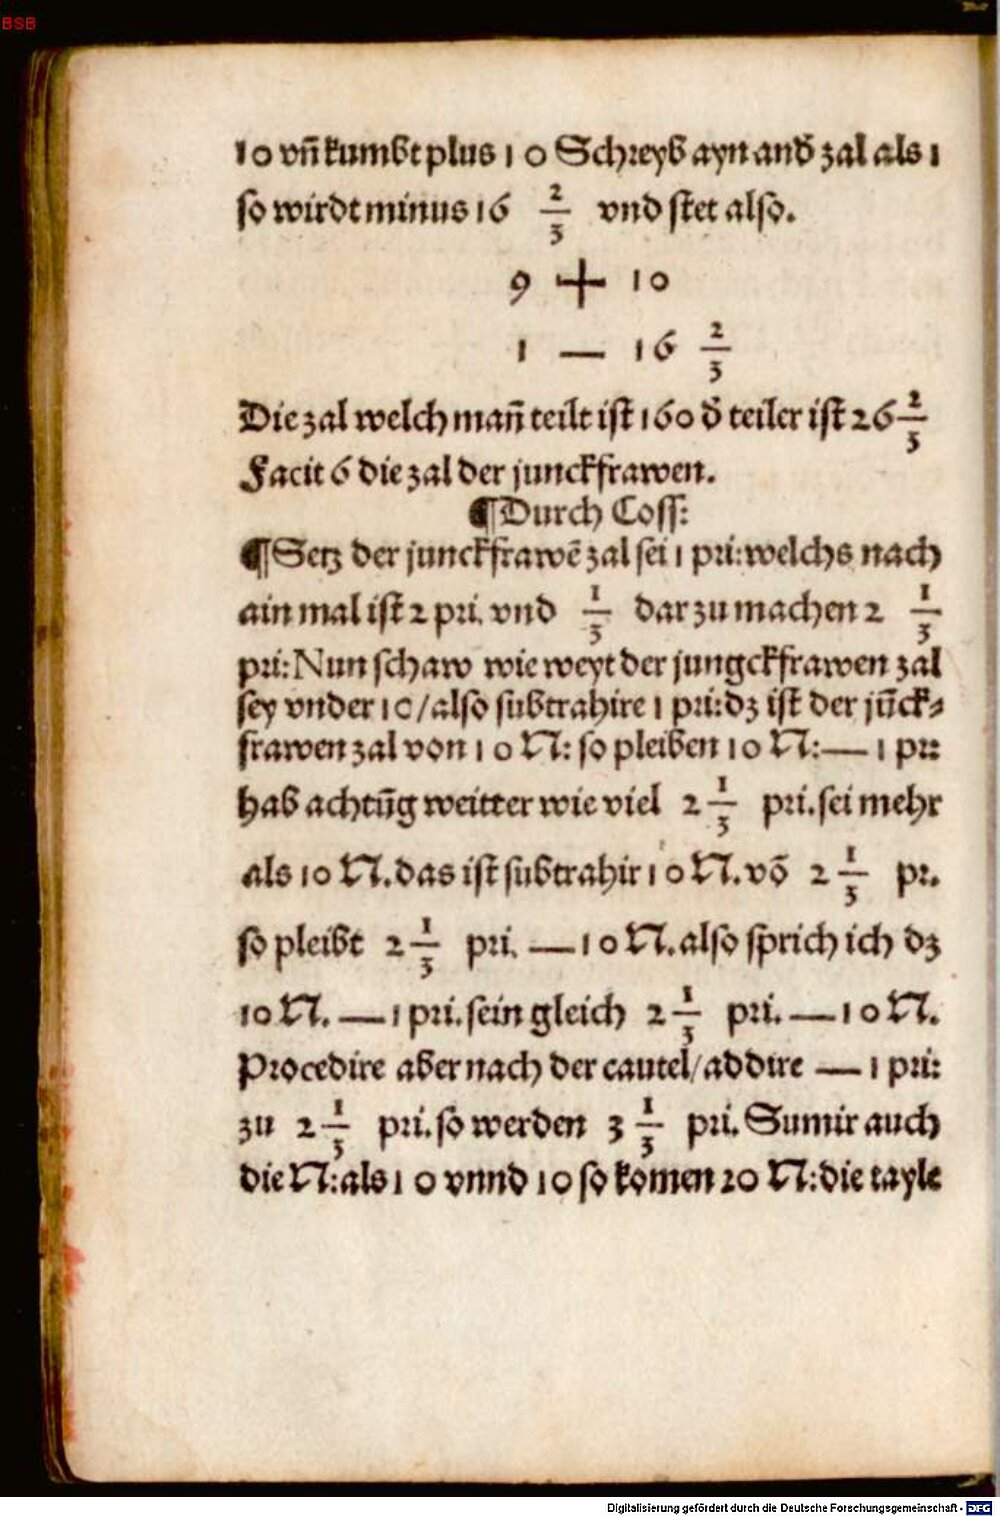 BSB
10 vñ kumbt plus 10 Schreyb ayn and̄ zal als 1
so wirdt minus 16 2/3 vnd stet also.
9 + 10
1 — 16 2/3
Die zal welch mañ teilt ist 160 d̄ teiler ist 26 2/3
Facit 6 die zal der junckfrawen.
¶Durch Coss:
¶Setz der junckfrawē zal sei 1 pri: welchs nach
ain mal ist 2 pri. vnd 1/3 dar zu machen 2 1/3
pri: Nun schaw wie weyt der jungckfrawen zal
sey vnder 10/ also subtrahire 1 pri: dz ist der jūck⸗
frawen zal von 10 N: so pleiben 10 N: — 1 pr:
hab achtūg weitter wie viel 2 1/3 pri. sei mehr
als 10 N. das ist subtrahir 10 N. vō 2 1/3 pr.
so pleibt 2 1/3 pri. — 10 N. also sprich ich dz
10 N. — 1 pri. sein gleich 2 1/3 pri. — 10 N.
Procedire aber nach der cautel/ addire — 1 pri:
zu 2 1/3 pri. so werden 3 1/3 pri. Sumir auch
die N: als 10 vnnd 10 so komen 20 N: die tayle
Digitalisierung gefördert durch die Deutsche Forschungsgemeinschaft - DFG